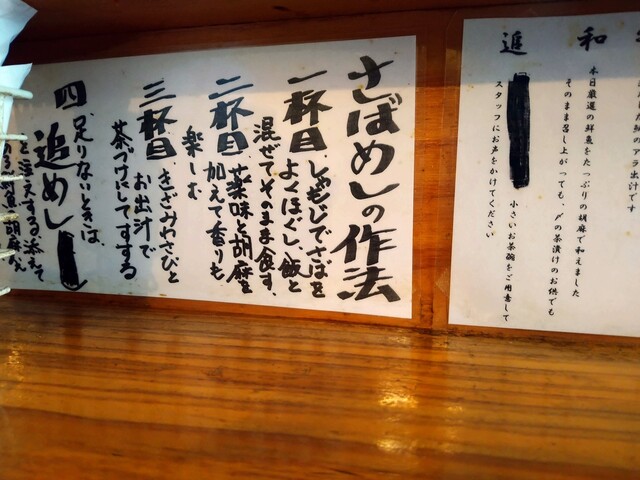 さばめしの作法
一杯目 しゃもじでさばを
よくほぐし、飯と
混ぜてそのまま食す、
二杯目 薬味と胡麻を
加えて香りも
楽しむ
三杯目 きざみわさびと
お出汁で
茶づけにしてすする
四、足りないときは、
追めし
と注文する
和
本日厳選の鮮魚をたっぷりの胡麻で和えました
そのまま召し上がっても、〆の茶漬けのお供でも
追
小さいお茶碗をご用意して
スタッフにお声をかけてください